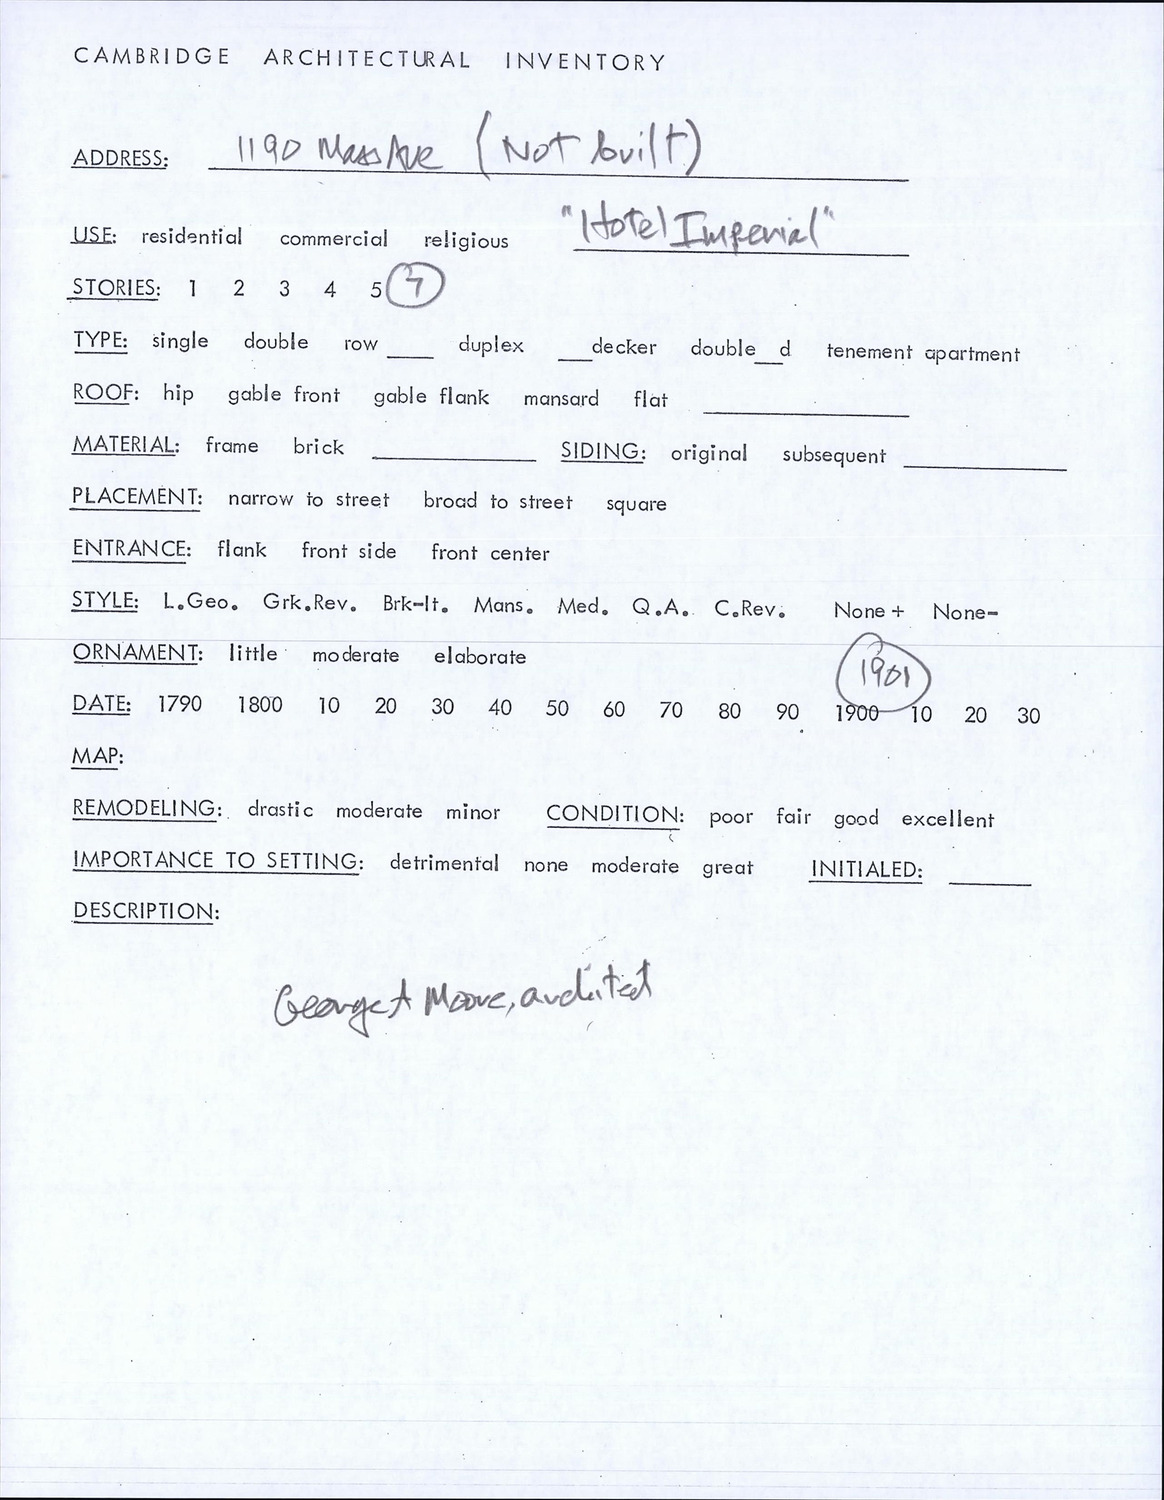 CAMBRIDGE ARCHITECTURAL INVENTORY
ADDRESS: 1190 Mass Ave (Not built)
USE: residential commercial religious "Hotel Imperial"
STORIES: 1 2 3 4 5 7
TYPE: single double row ____ duplex ___decker double__d tenement apartment
ROOF: hip gable front gable flank mansard flat
MATERIAL: frame brick ____ SIDING: original subsequent ____
PLACEMENT: narrow to street broad to street square
ENTRANCE: flank front side front center
STYLE: L.Geo. Grk.Rev. Brk-It. Mans. Med. Q.A. C.Rev. None+ None-
ORNAMENT: little moderate elaborate 1901
DATE: 1790 1800 10 20 30 40 50 60 70 80 90 1900 10 20 30
MAP:
REMODELING: drastic moderate minor CONDITION: poor fair good excellent
IMPORTANCE TO SETTING: detrimental none moderate great INITIALED: ____
DESCRIPTION:
George A Moore, architect